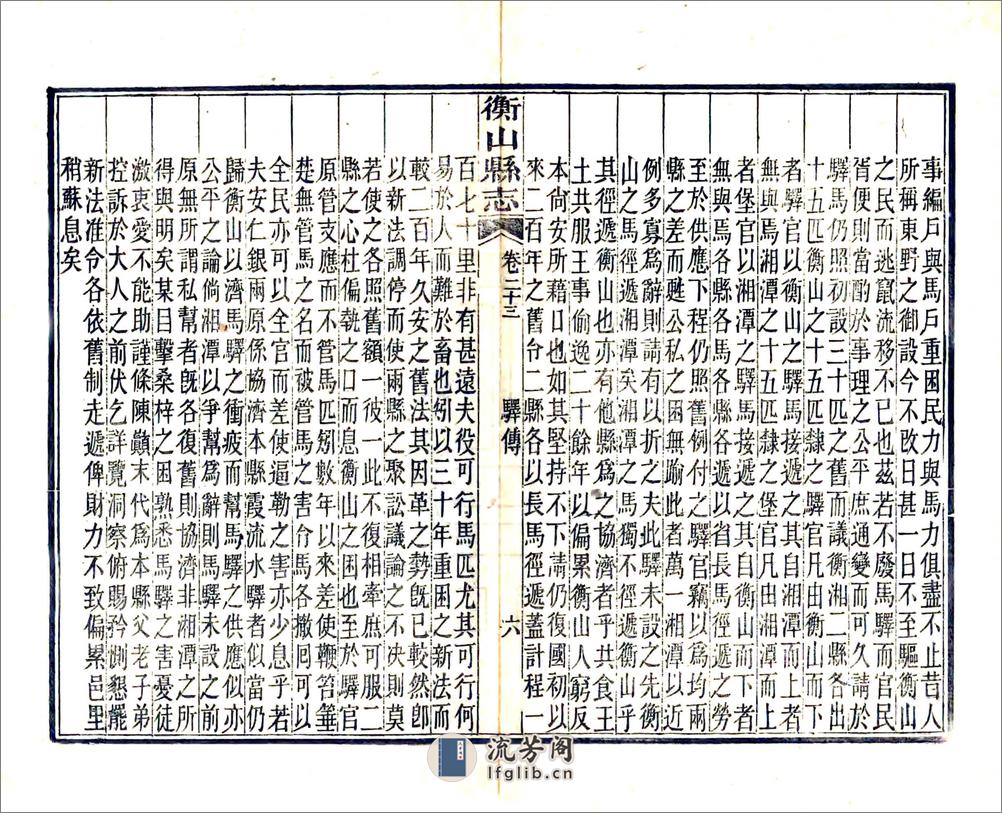 事編戶與馬戶重困民力與馬力俱盡不止昔人
所稱東野之御設今不改日甚一日不至驅衡山
之民而逃竄流移不已也茲若不廢馬驛而官民
胥便則當酌於事理之公平庶通變而可久請於
驛馬仍照初設三十匹之舊而議衡湘二縣各出
十五匹衡山之十五匹隸之驛官凡由衡山而下
者驛官以衡山之驛馬接遞之其自湘潭而上者
無與焉湘潭之十五匹隸之堡官凡出湘潭而上
者堡官以湘潭之驛馬接遞之其自衡山而下者
無與焉縣各縣馬各馬既以省長馬徑遞之勞
至於供應下程仍照舊例付之驛官竊以為均兩
縣之差而甦公私之困無踰此者萬一湘潭以近
例多寡為辭則請有以折之夫此驛未設之先衡
山之馬徑遞湘潭矣湘潭之馬獨不徑遞衡山乎
其徑遞衡山也亦有他縣為之協濟者乎共食王
土共服王事偷逸二十餘年以偏累衡山人窮反
本尚安所藉口也如其堅持不下請仍復國初以
來二百年之舊令二縣各以長馬徑遞蓋計程一
衡山縣志
卷二十三
驛傳
六
百七十里非有甚遠夫役可行馬匹尤其可行何
易於人而難於畜也矧以三十年重困之新法而
較二百年久安之舊法其因革之勢既已較然卽
以新法調停而使兩縣之聚訟議論之不決則莫
若使之各照舊額一彼一此不復相牽庶可服二
縣之心杜偏執之口而息衡山之困也至於驛官
原管支應而不管馬匹矧數年以來差使鞭笞箠
楚無管馬之名而被管馬之害分馬各撤囘可以
全民亦可以全官而差使逼勒之害亦少息乎若
夫安仁銀兩原係協濟本縣霞流水驛者似當仍
歸衡山以濟馬驛之衝疲而幫馬驛之供應似亦
公平之論倘湘潭以爭幫為辭則馬驛未設之前
原無所謂私幫者既各復舊則協濟非湘潭之所
得與明矣某目擊桑梓之困熟悉馬驛之害憂徒
激衷愛不能助謹條陳顛末代為本縣父老子弟
控訴於大人之前伏乞詳覽洞察俯賜矜惻懇罷
新法准令各依舊制走遞俾財力不致偏累邑里
稍蘇息矣
流芳阁
lfglib.cn